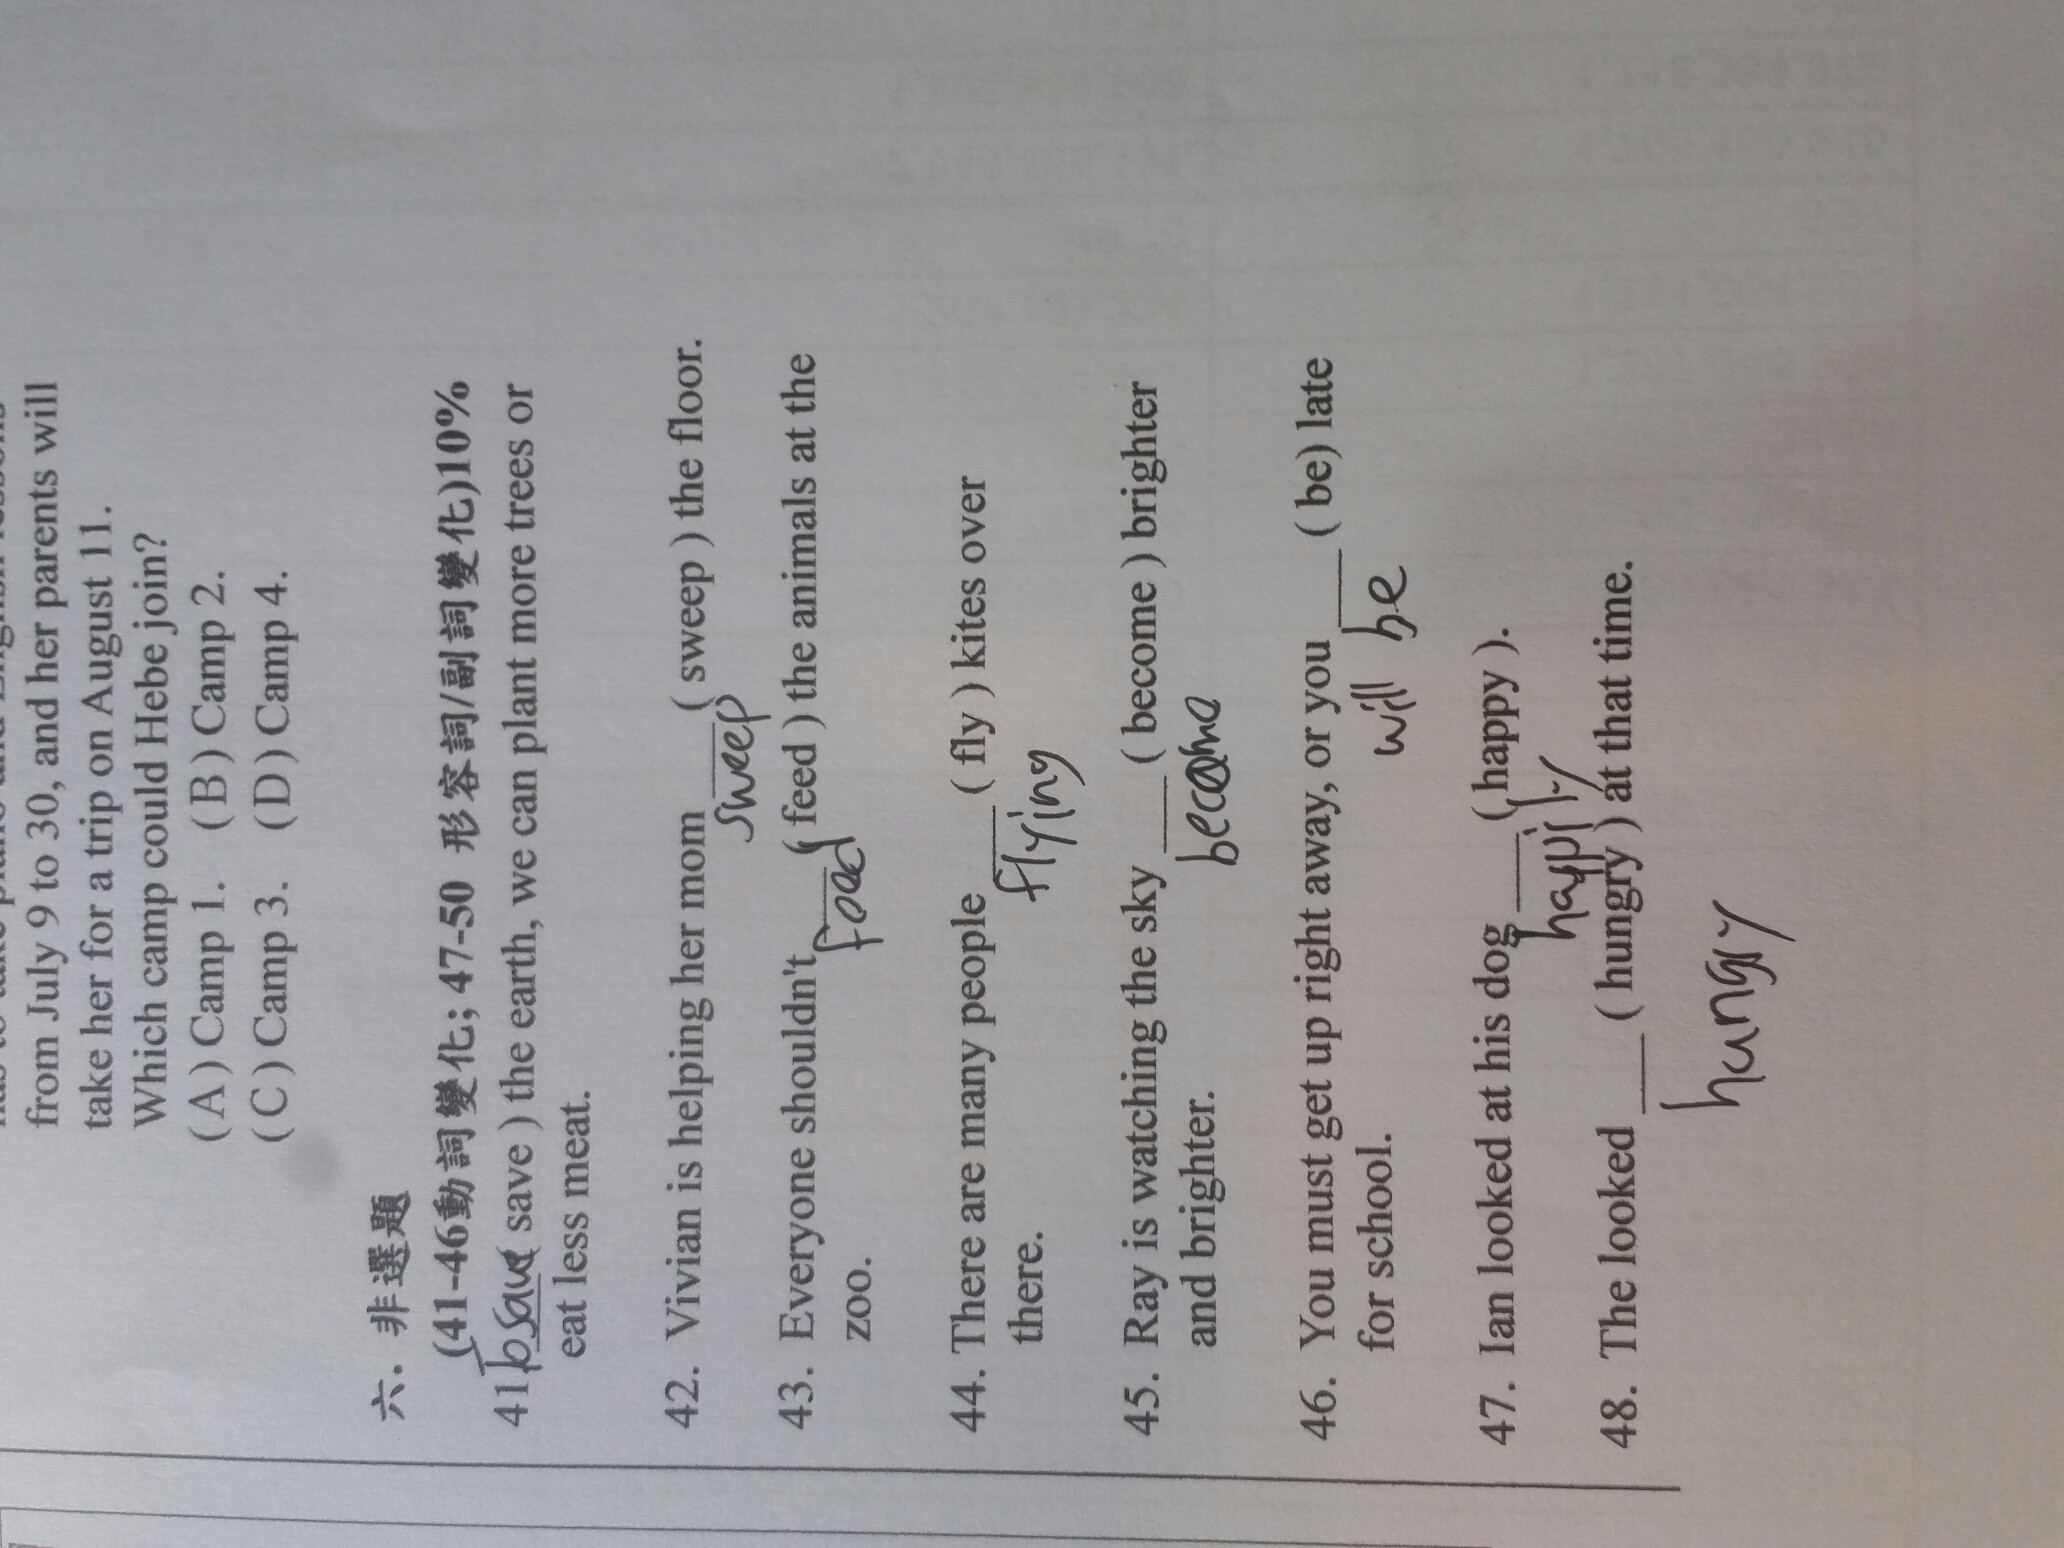 from July 9 to 30, and her parents will
take her for a trip on August 11.
Which camp could Hebe join?
(A) Camp 1. (B) Camp 2.
(C) Camp 3. (D) Camp 4.
六. 非選題
(41-46動詞變化; 47-50 形容詞/副詞變化)10%
41 ( save ) the earth, we can plant more trees or
eat less meat.
42. Vivian is helping her mom ___( sweep ) the floor.
sweep
43. Everyone shouldn't ___( feed ) the animals at the
food
zoo.
44. There are many people ___( fly ) kites over
flying
there.
45. Ray is watching the sky ___( become ) brighter
and brighter.
46. You must get up right away, or you ___( be) late
will be
for school.
47. Ian looked at his dog ___( happy ).
happily
48. The looked ___( hungry ) at that time.
hungry